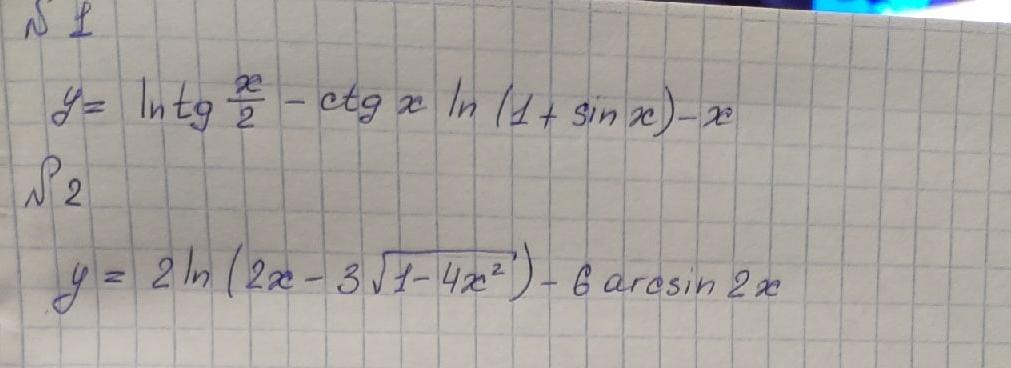 № 1
y = ln tg x/2 - ctg x ln (1 + sin x) - x
№ 2
y = 2 ln (2x - 3√(1 - 4x²)) - 6 arcsin 2x